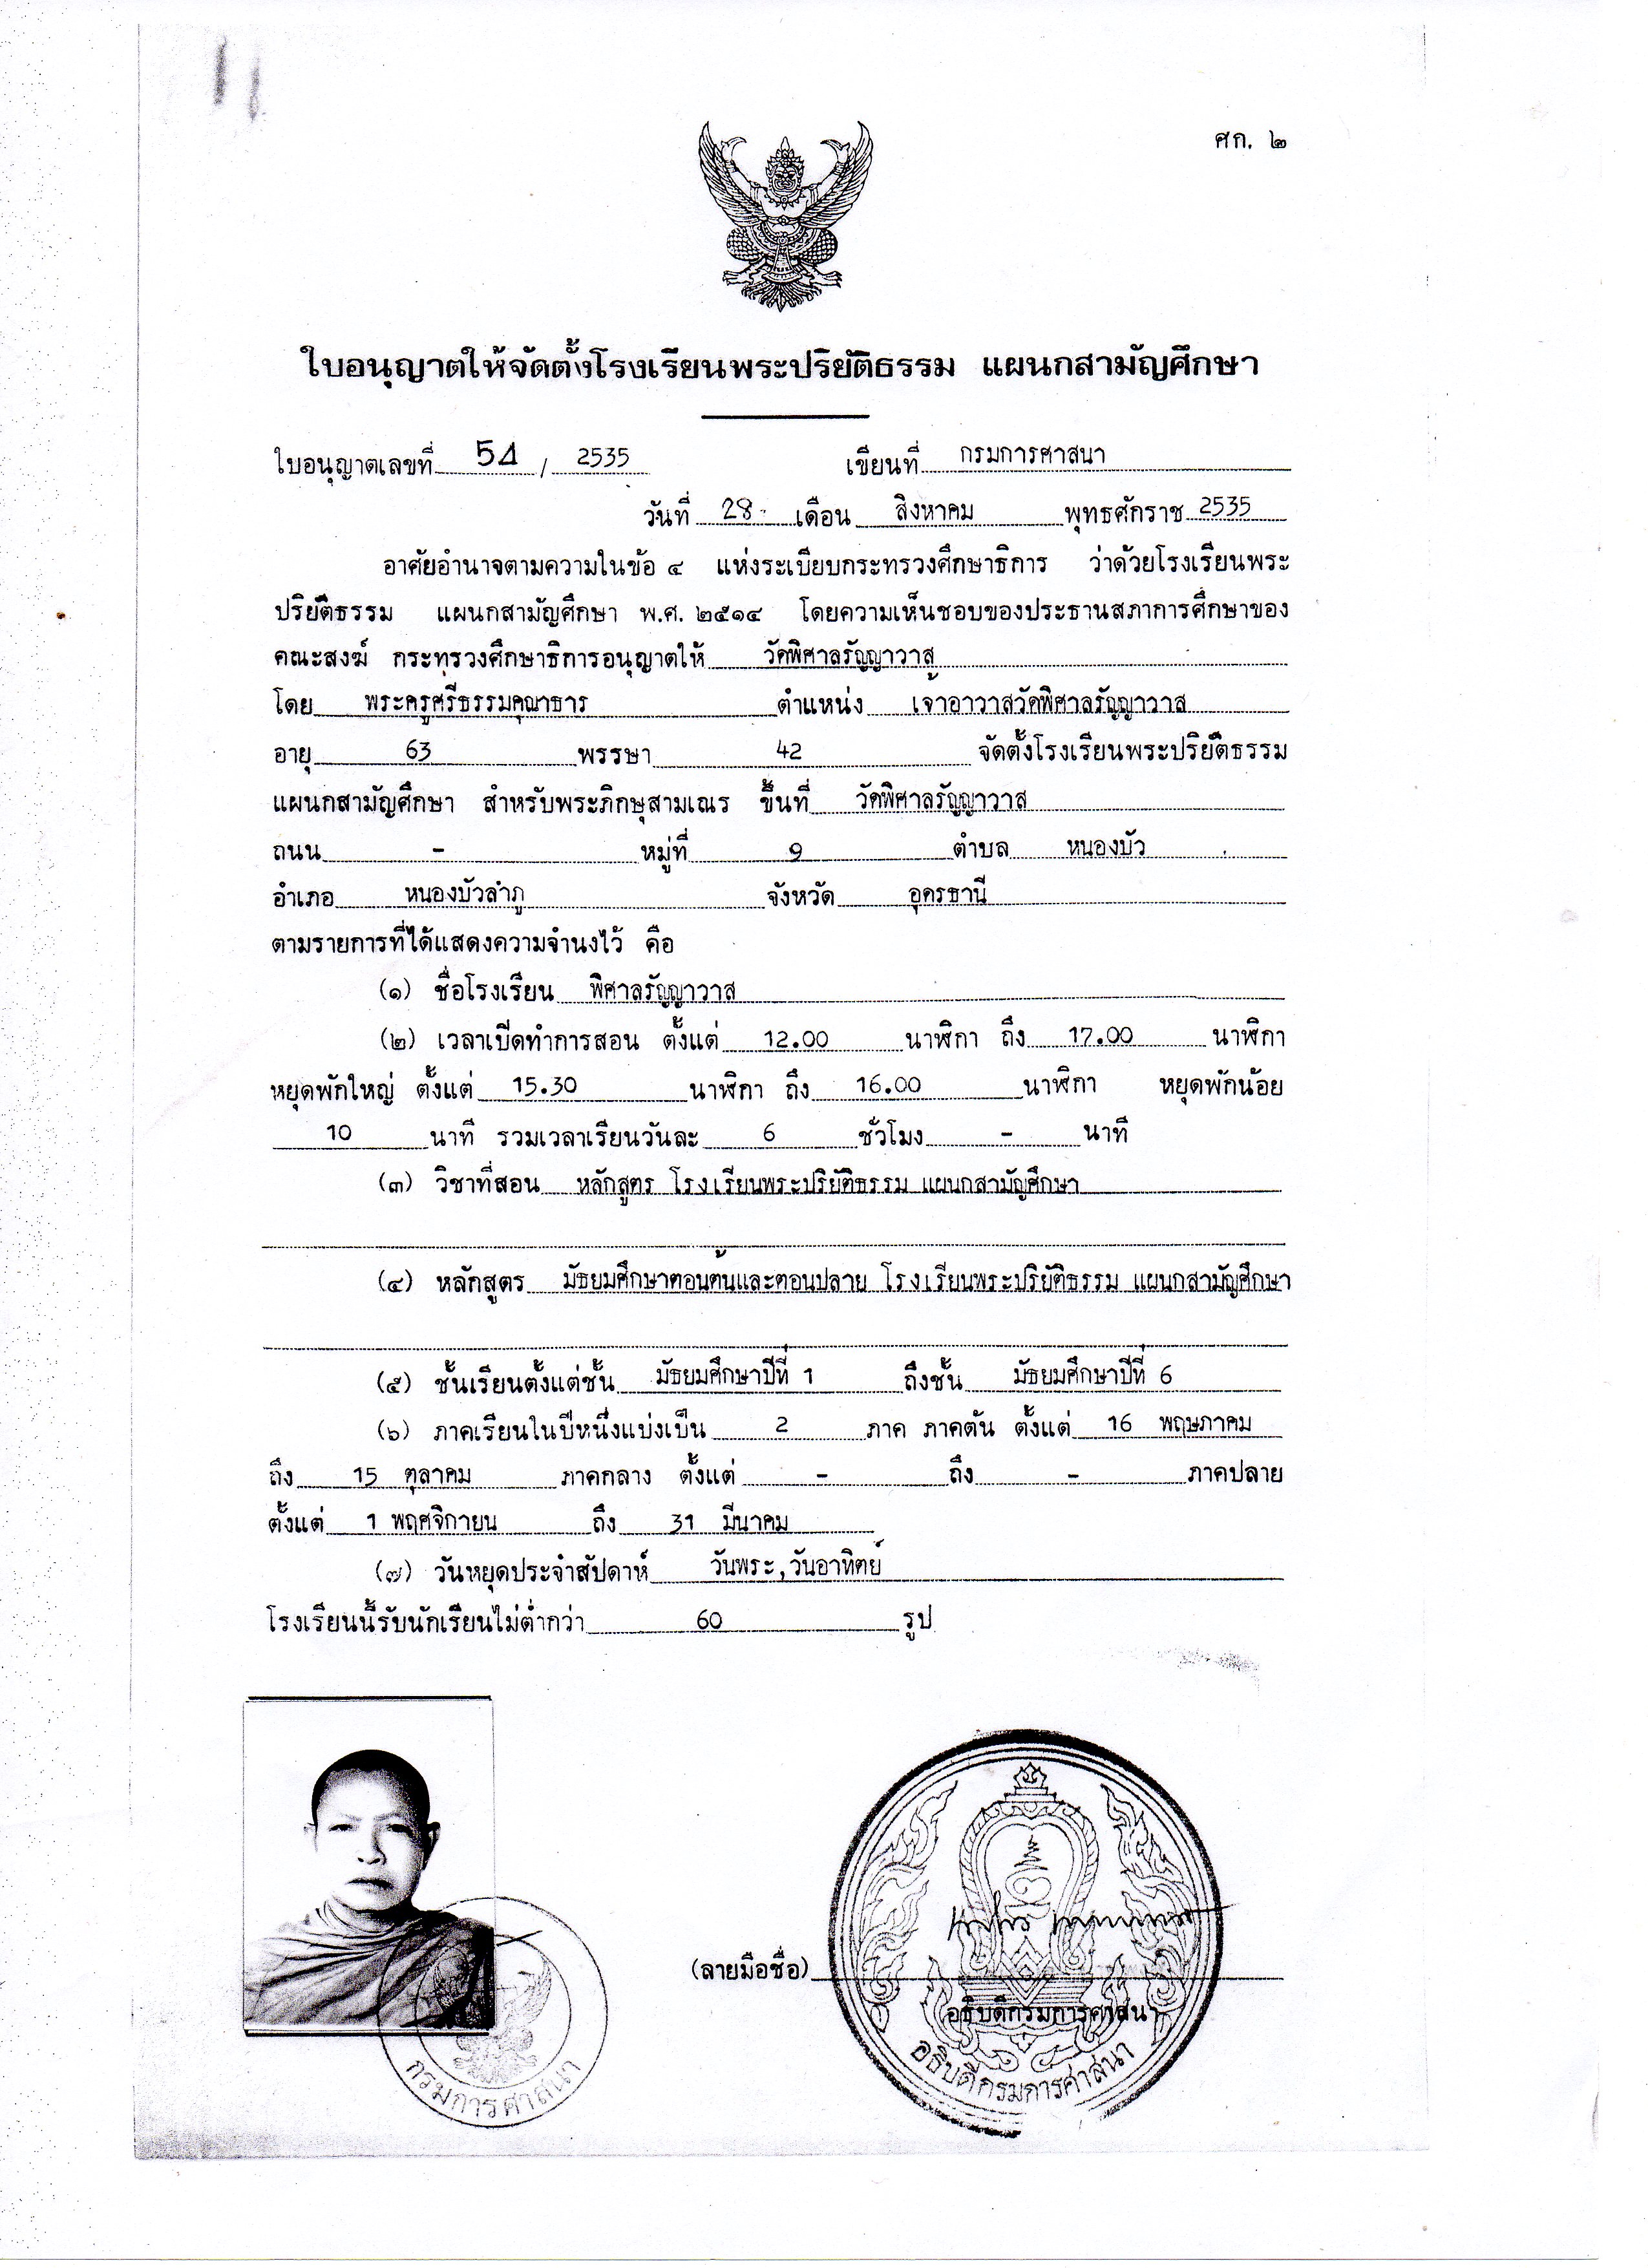 ศก. ๒
ใบอนุญาตให้จัดตั้งโรงเรียนพระปริยัติธรรม แผนกสามัญศึกษา
ใบอนุญาตเลขที่ 54 / 2535 เขียนที่ กรมการศาสนา
วันที่ 28 เดือน สิงหาคม พุทธศักราช 2535
อาศัยอำนาจตามความในข้อ ๔ แห่งระเบียบกระทรวงศึกษาธิการ ว่าด้วยโรงเรียนพระ
ปริยัติธรรม แผนกสามัญศึกษา พ.ศ. ๒๕๑๔ โดยความเห็นชอบของประธานสภาการศึกษาของ
คณะสงฆ์ กระทรวงศึกษาธิการอนุญาตให้ วัดพิศาลรัญญาวาส
โดย พระครูศรีธรรมคุณาธาร ตำแหน่ง เจ้าอาวาสวัดพิศาลรัญญาวาส
อายุ 63 พรรษา 42 จัดตั้งโรงเรียนพระปริยัติธรรม
แผนกสามัญศึกษา สำหรับพระภิกษุสามเณร ขึ้นที่ วัดพิศาลรัญญาวาส
ถนน - หมู่ที่ 9 ตำบล หนองบัว
อำเภอ หนองบัวลำภู จังหวัด อุดรธานี
ตามรายการที่ได้แสดงความจำนงไว้ คือ
(๑) ชื่อโรงเรียน พิศาลรัญญาวาส
(๒) เวลาเปิดทำการสอน ตั้งแต่ 12.00 นาฬิกา ถึง 17.00 นาฬิกา
หยุดพักใหญ่ ตั้งแต่ 15.30 นาฬิกา ถึง 16.00 นาฬิกา หยุดพักน้อย
10 นาที รวมเวลาเรียนวันละ 6 ชั่วโมง - นาที
(๓) วิชาที่สอน หลักสูตร โรงเรียนพระปริยัติธรรม แผนกสามัญศึกษา
(๔) หลักสูตร มัธยมศึกษาตอนต้นและตอนปลาย โรงเรียนพระปริยัติธรรม แผนกสามัญศึกษา
(๕) ชั้นเรียนตั้งแต่ชั้น มัธยมศึกษาปีที่ 1 ถึงชั้น มัธยมศึกษาปีที่ 6
(๖) ภาคเรียนในปีหนึ่งแบ่งเป็น 2 ภาค ภาคต้น ตั้งแต่ 16 พฤษภาคม
ถึง 15 ตุลาคม ภาคกลาง ตั้งแต่ - ถึง - ภาคปลาย
ตั้งแต่ 1 พฤศจิกายน ถึง 31 มีนาคม
(๗) วันหยุดประจำสัปดาห์ วันพระ,วันอาทิตย์
โรงเรียนนี้รับนักเรียนไม่ต่ำกว่า 60 รูป
(ลายมือชื่อ)
อธิบดีกรมการศาสนา
อธิบดีกรมการศาสนา
กรมการศาสนา